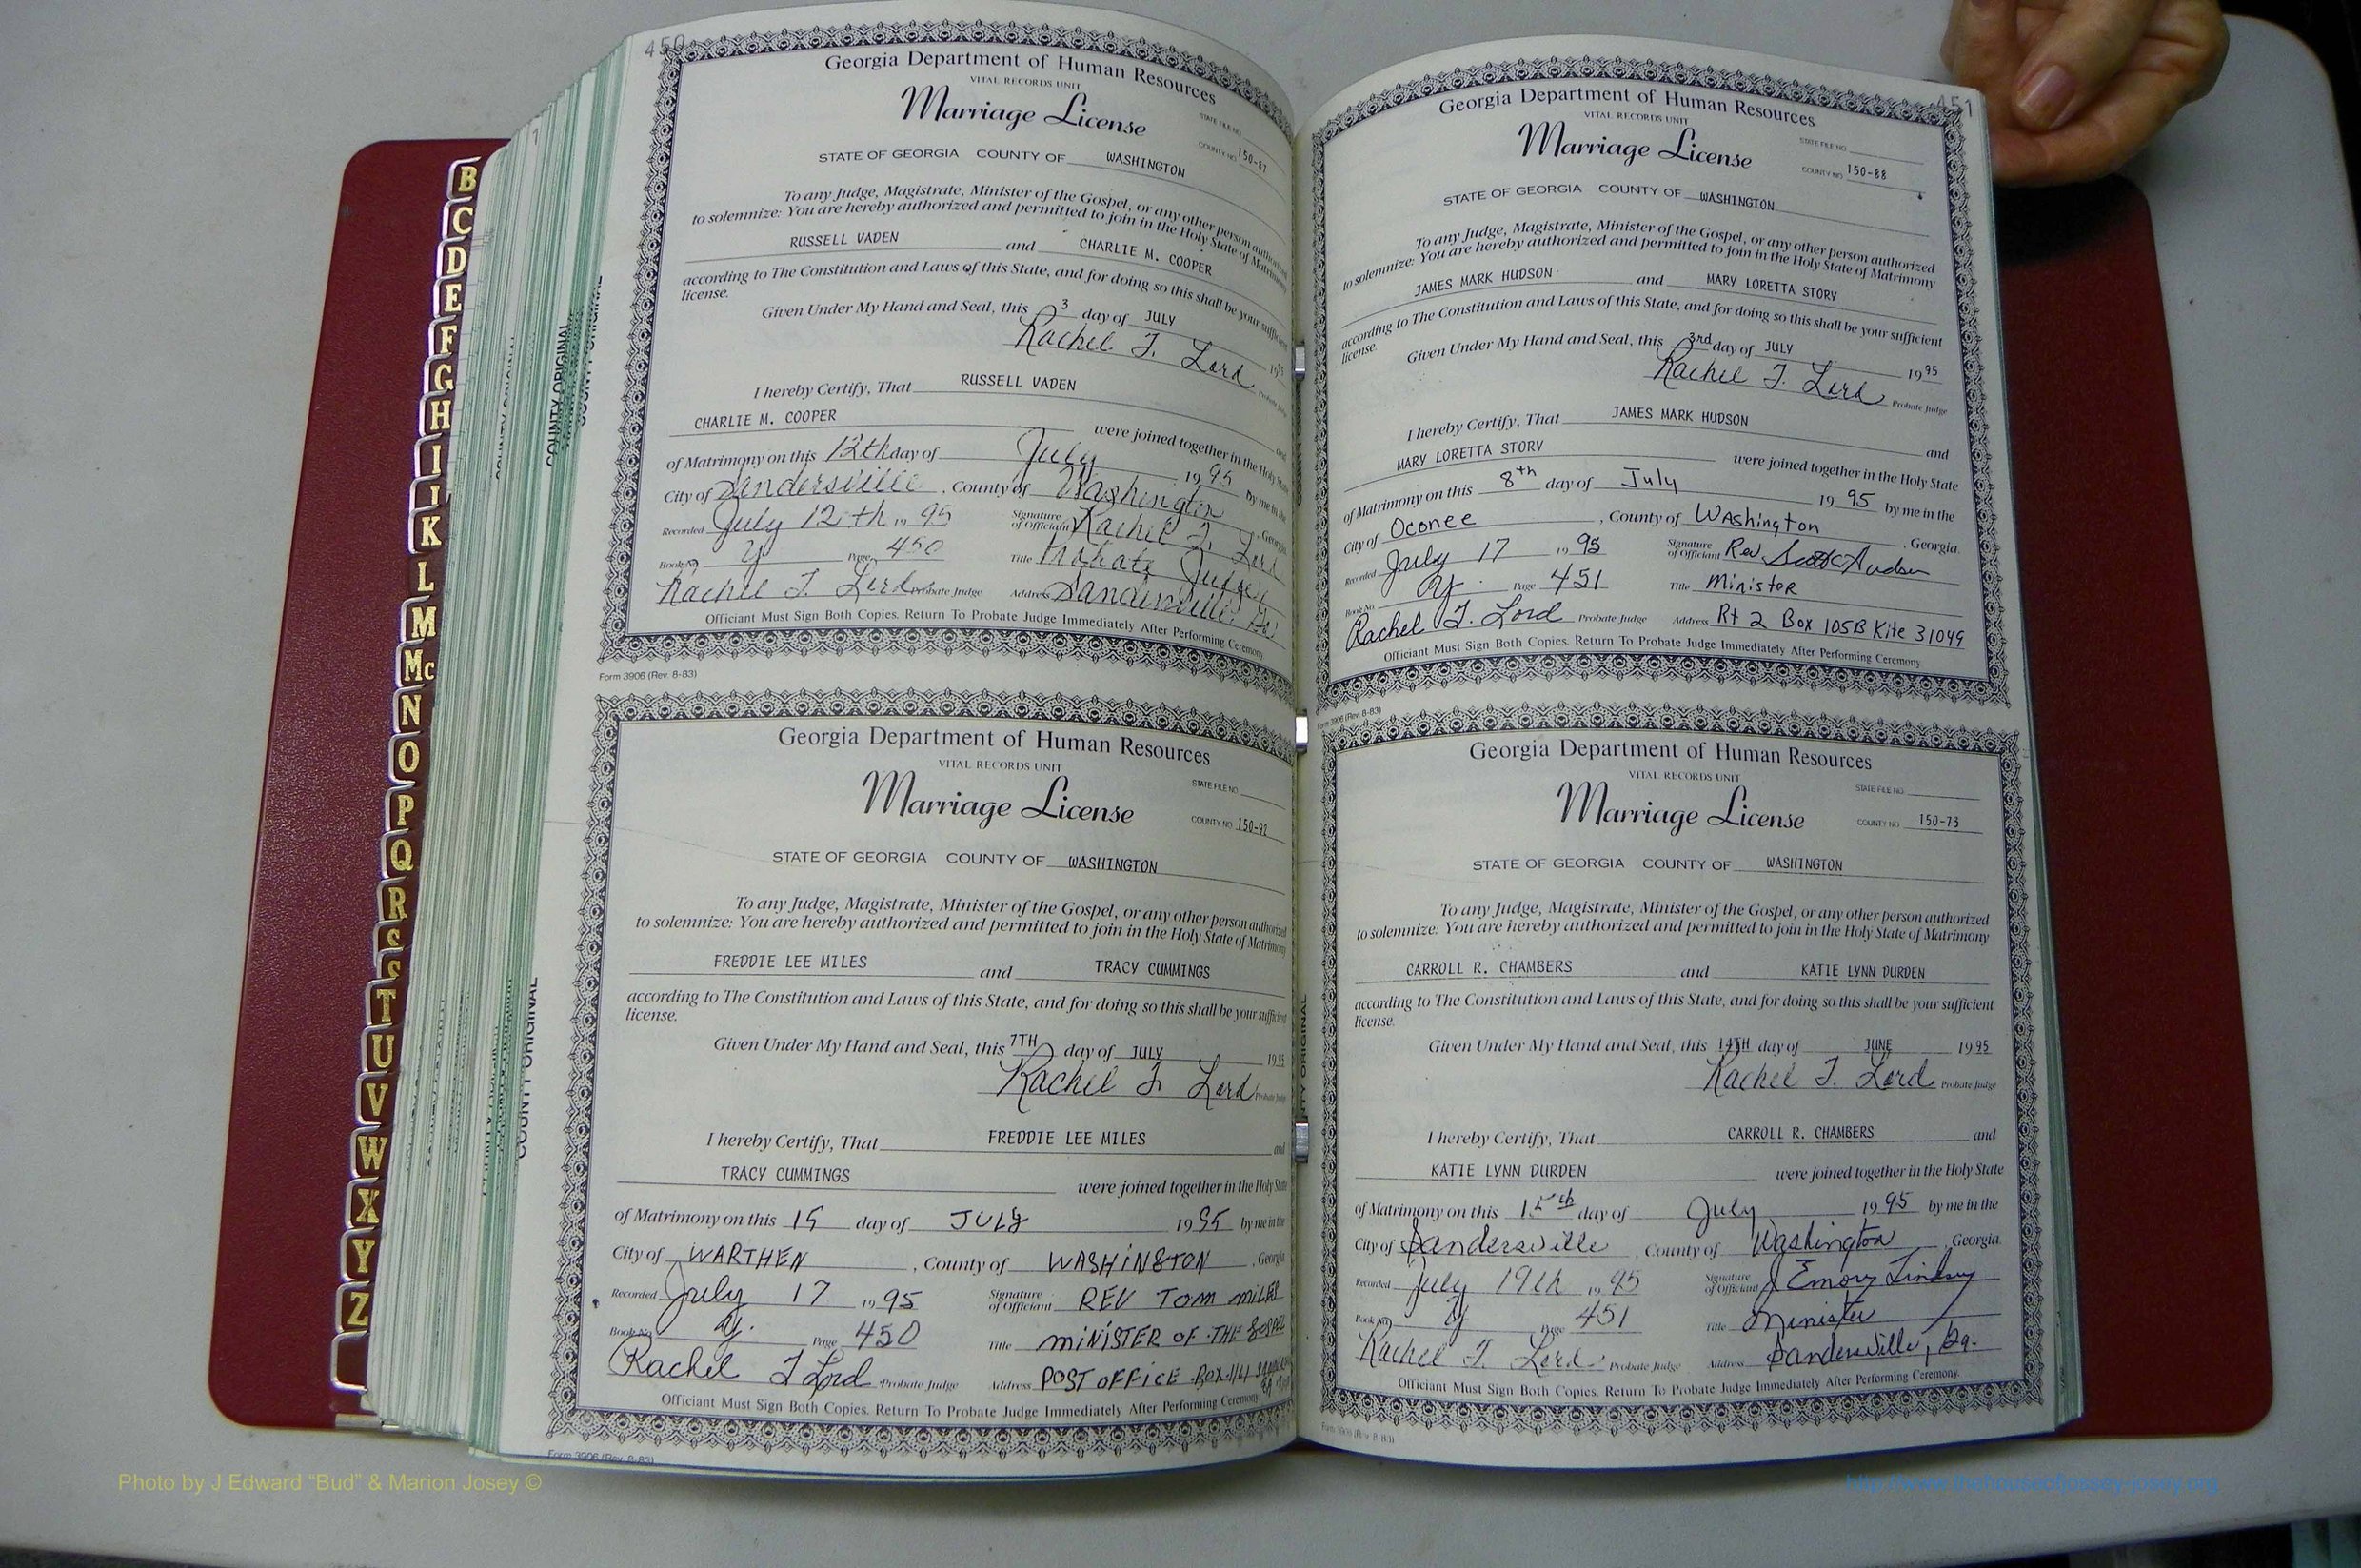 450
Georgia Department of Human Resources
VITAL RECORDS UNIT
Marriage License
STATE FILE NO.
COUNTY NO. 150-87
STATE OF GEORGIA COUNTY OF WASHINGTON
To any Judge, Magistrate, Minister of the Gospel, or any other person authorized
to solemnize: You are hereby authorized and permitted to join in the Holy State of Matrimony
RUSSELL VADEN and CHARLIE M. COOPER
according to The Constitution and Laws of this State, and for doing so this shall be your sufficient
license.
Given Under My Hand and Seal, this 3 day of JULY 1995
Rachel T. Lord Probate Judge
I hereby Certify, That RUSSELL VADEN and
CHARLIE M. COOPER were joined together in the Holy State
of Matrimony on this 12th day of July 1995 by me in the
City of Sandersville, County of Washington, Georgia
Recorded July 12th 1995 Signature of Officiant Rachel T. Lord
Book No. Y Page 450 Title Probate Judge
Rachel T. Lord Probate Judge Address Sandersville, Ga.
Officiant Must Sign Both Copies. Return To Probate Judge Immediately After Performing Ceremony
Form 3906 (Rev. 8-83)
Georgia Department of Human Resources
VITAL RECORDS UNIT
Marriage License
STATE FILE NO.
COUNTY NO. 150-92
STATE OF GEORGIA COUNTY OF WASHINGTON
To any Judge, Magistrate, Minister of the Gospel, or any other person authorized
to solemnize: You are hereby authorized and permitted to join in the Holy State of Matrimony
FREDDIE LEE MILES and TRACY CUMMINGS
according to The Constitution and Laws of this State, and for doing so this shall be your sufficient
license.
Given Under My Hand and Seal, this 7TH day of JULY 1995
Rachel T. Lord Probate Judge
I hereby Certify, That FREDDIE LEE MILES and
TRACY CUMMINGS were joined together in the Holy State
of Matrimony on this 15 day of JULY 1995 by me in the
City of WARTHEN, County of WASHINGTON, Georgia
Recorded July 17 1995 Signature of Officiant REV TOM MILES
Book No. Y. Page 450 Title MINISTER OF THE GOSPEL
Rachel T Lord Probate Judge Address POST OFFICE BOX
Officiant Must Sign Both Copies. Return To Probate Judge Immediately After Performing Ceremony
Form 3906 (Rev. 8-83)
451
Georgia Department of Human Resources
VITAL RECORDS UNIT
Marriage License
STATE FILE NO.
COUNTY NO. 150-88
STATE OF GEORGIA COUNTY OF WASHINGTON
To any Judge, Magistrate, Minister of the Gospel, or any other person authorized
to solemnize: You are hereby authorized and permitted to join in the Holy State of Matrimony
JAMES MARK HUDSON and MARY LORETTA STORY
according to The Constitution and Laws of this State, and for doing so this shall be your sufficient
license.
Given Under My Hand and Seal, this 3rd day of JULY 1995
Rachel T. Lord Probate Judge
I hereby Certify, That JAMES MARK HUDSON and
MARY LORETTA STORY were joined together in the Holy State
of Matrimony on this 8th day of July 1995 by me in the
City of Oconee, County of Washington, Georgia.
Recorded July 17 1995 Signature of Officiant Rev. Scott Hudson
Book No. Y. Page 451 Title Minister
Rachel T. Lord Probate Judge Address Rt 2 Box 105B Kite 31049
Officiant Must Sign Both Copies. Return To Probate Judge Immediately After Performing Ceremony
Form 3906 (Rev. 8-83)
Georgia Department of Human Resources
VITAL RECORDS UNIT
Marriage License
STATE FILE NO.
COUNTY NO. 150-73
STATE OF GEORGIA COUNTY OF WASHINGTON
To any Judge, Magistrate, Minister of the Gospel, or any other person authorized
to solemnize: You are hereby authorized and permitted to join in the Holy State of Matrimony
CARROLL R. CHAMBERS and KATIE LYNN DURDEN
according to The Constitution and Laws of this State, and for doing so this shall be your sufficient
license.
Given Under My Hand and Seal, this 14TH day of JUNE 1995
Rachel T. Lord Probate Judge
I hereby Certify, That CARROLL R. CHAMBERS and
KATIE LYNN DURDEN were joined together in the Holy State
of Matrimony on this 15th day of July 1995 by me in the
City of Sandersville, County of Washington, Georgia.
Recorded July 19th 1995 Signature of Officiant J Emory Lindsey
Book No. Y Page 451 Title Minister
Rachel T. Lord Probate Judge Address Sandersville, Ga.
Officiant Must Sign Both Copies. Return To Probate Judge Immediately After Performing Ceremony.
Form 3906 (Rev. 8-83)
B
C
D
E
F
G
H
I
J
K
L
M
Mc
N
O
P
Q
R
S
S
T
U
V
W
X
Y
Z
COUNTY ORIGINAL
COUNTY ORIGINAL
COUNTY ORIGINAL
Photo by J Edward “Bud” & Marion Josey ©
http://www.thehouseofjossey-josey.org